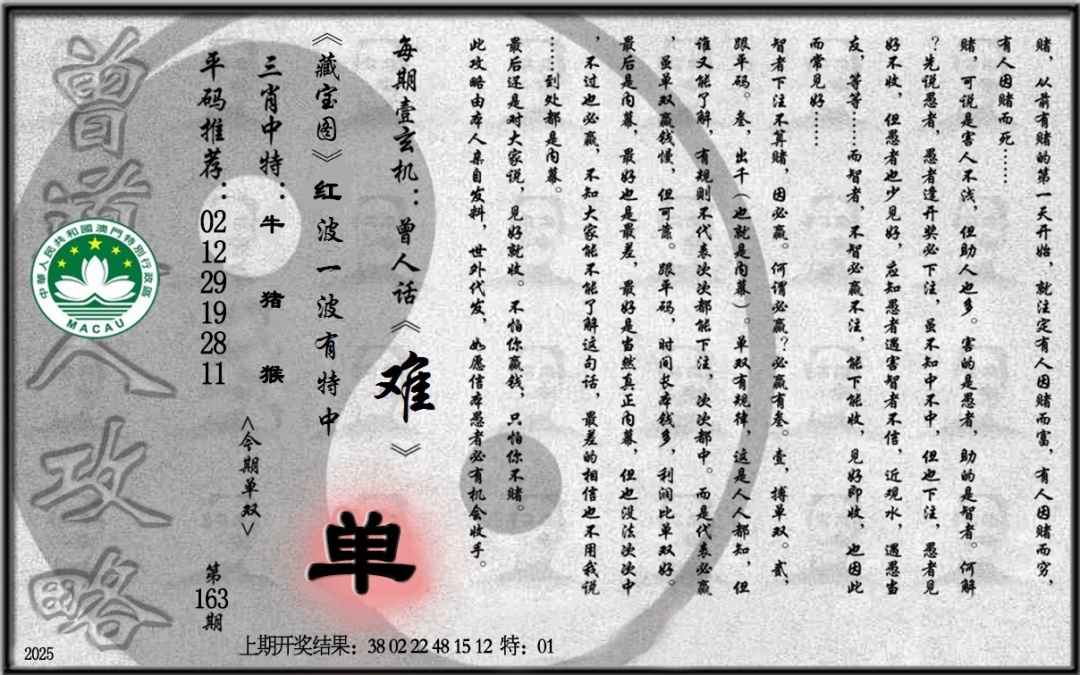 赌，从前有赌的第一天开始，就注定有人因赌而富，有人因赌而穷，
有人因赌而死……
赌，可说是害人不浅，但助人也多。害的是愚者，助的是智者。何解
？先说愚者，愚者逢开奖必下注，虽不知中不中，但也下注，愚者见
好不收，但愚者也少见好，应知愚者遇害智者不信，近观水，遇愚当
友，等等……而智者，不智必赢不注，能下能收，见好即收，也因此
而常见好……
智者下注不算赌，因必赢。何谓必赢？必赢有叁。壹，搏单双。贰，
跟平码。叁，出千（也就是内幕）。单双有规律，这是人人都知，但
谁又能了解，有规则不代表次次都能下注，次次都中。而是代表必赢
，虽单双赢钱慢，但可靠。跟平码，时间长本钱多，利润比单双好。
最后是内幕，最好也是最差，最好是当然真正内幕，但也没法次次中
，不过也必赢，不知大家能不能了解这句话，最差的相信也不用我说
……到处都是内幕。
最后还是对大家说，见好就收。不怕你赢钱，只怕你不赌。
此攻略由本人亲自发料，世外代发，如愿信本愚者必有机会收手。
每期壹玄机：曾人话《难》
《藏宝图》红波一波有特中
单
三肖中特：牛 猪 猴
<今期单双>
平码推荐：02 12 29 19 28 11
第163期
曾道人攻略
中華人民共和國澳門特別行政區
MACAU
上期开奖结果：38 02 22 48 15 12 特：01
2025